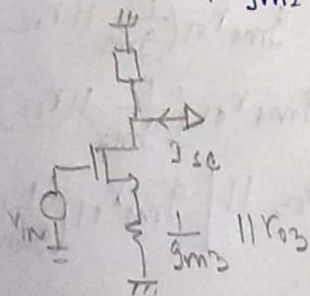 gm2
Isc
VIN
1/gm3 || ro3